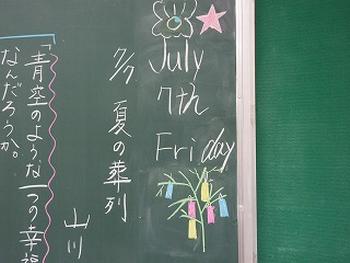 July
7th
Friday
7/7 夏の葬列
山川
「青空のような一つの幸福
なんだろうか。